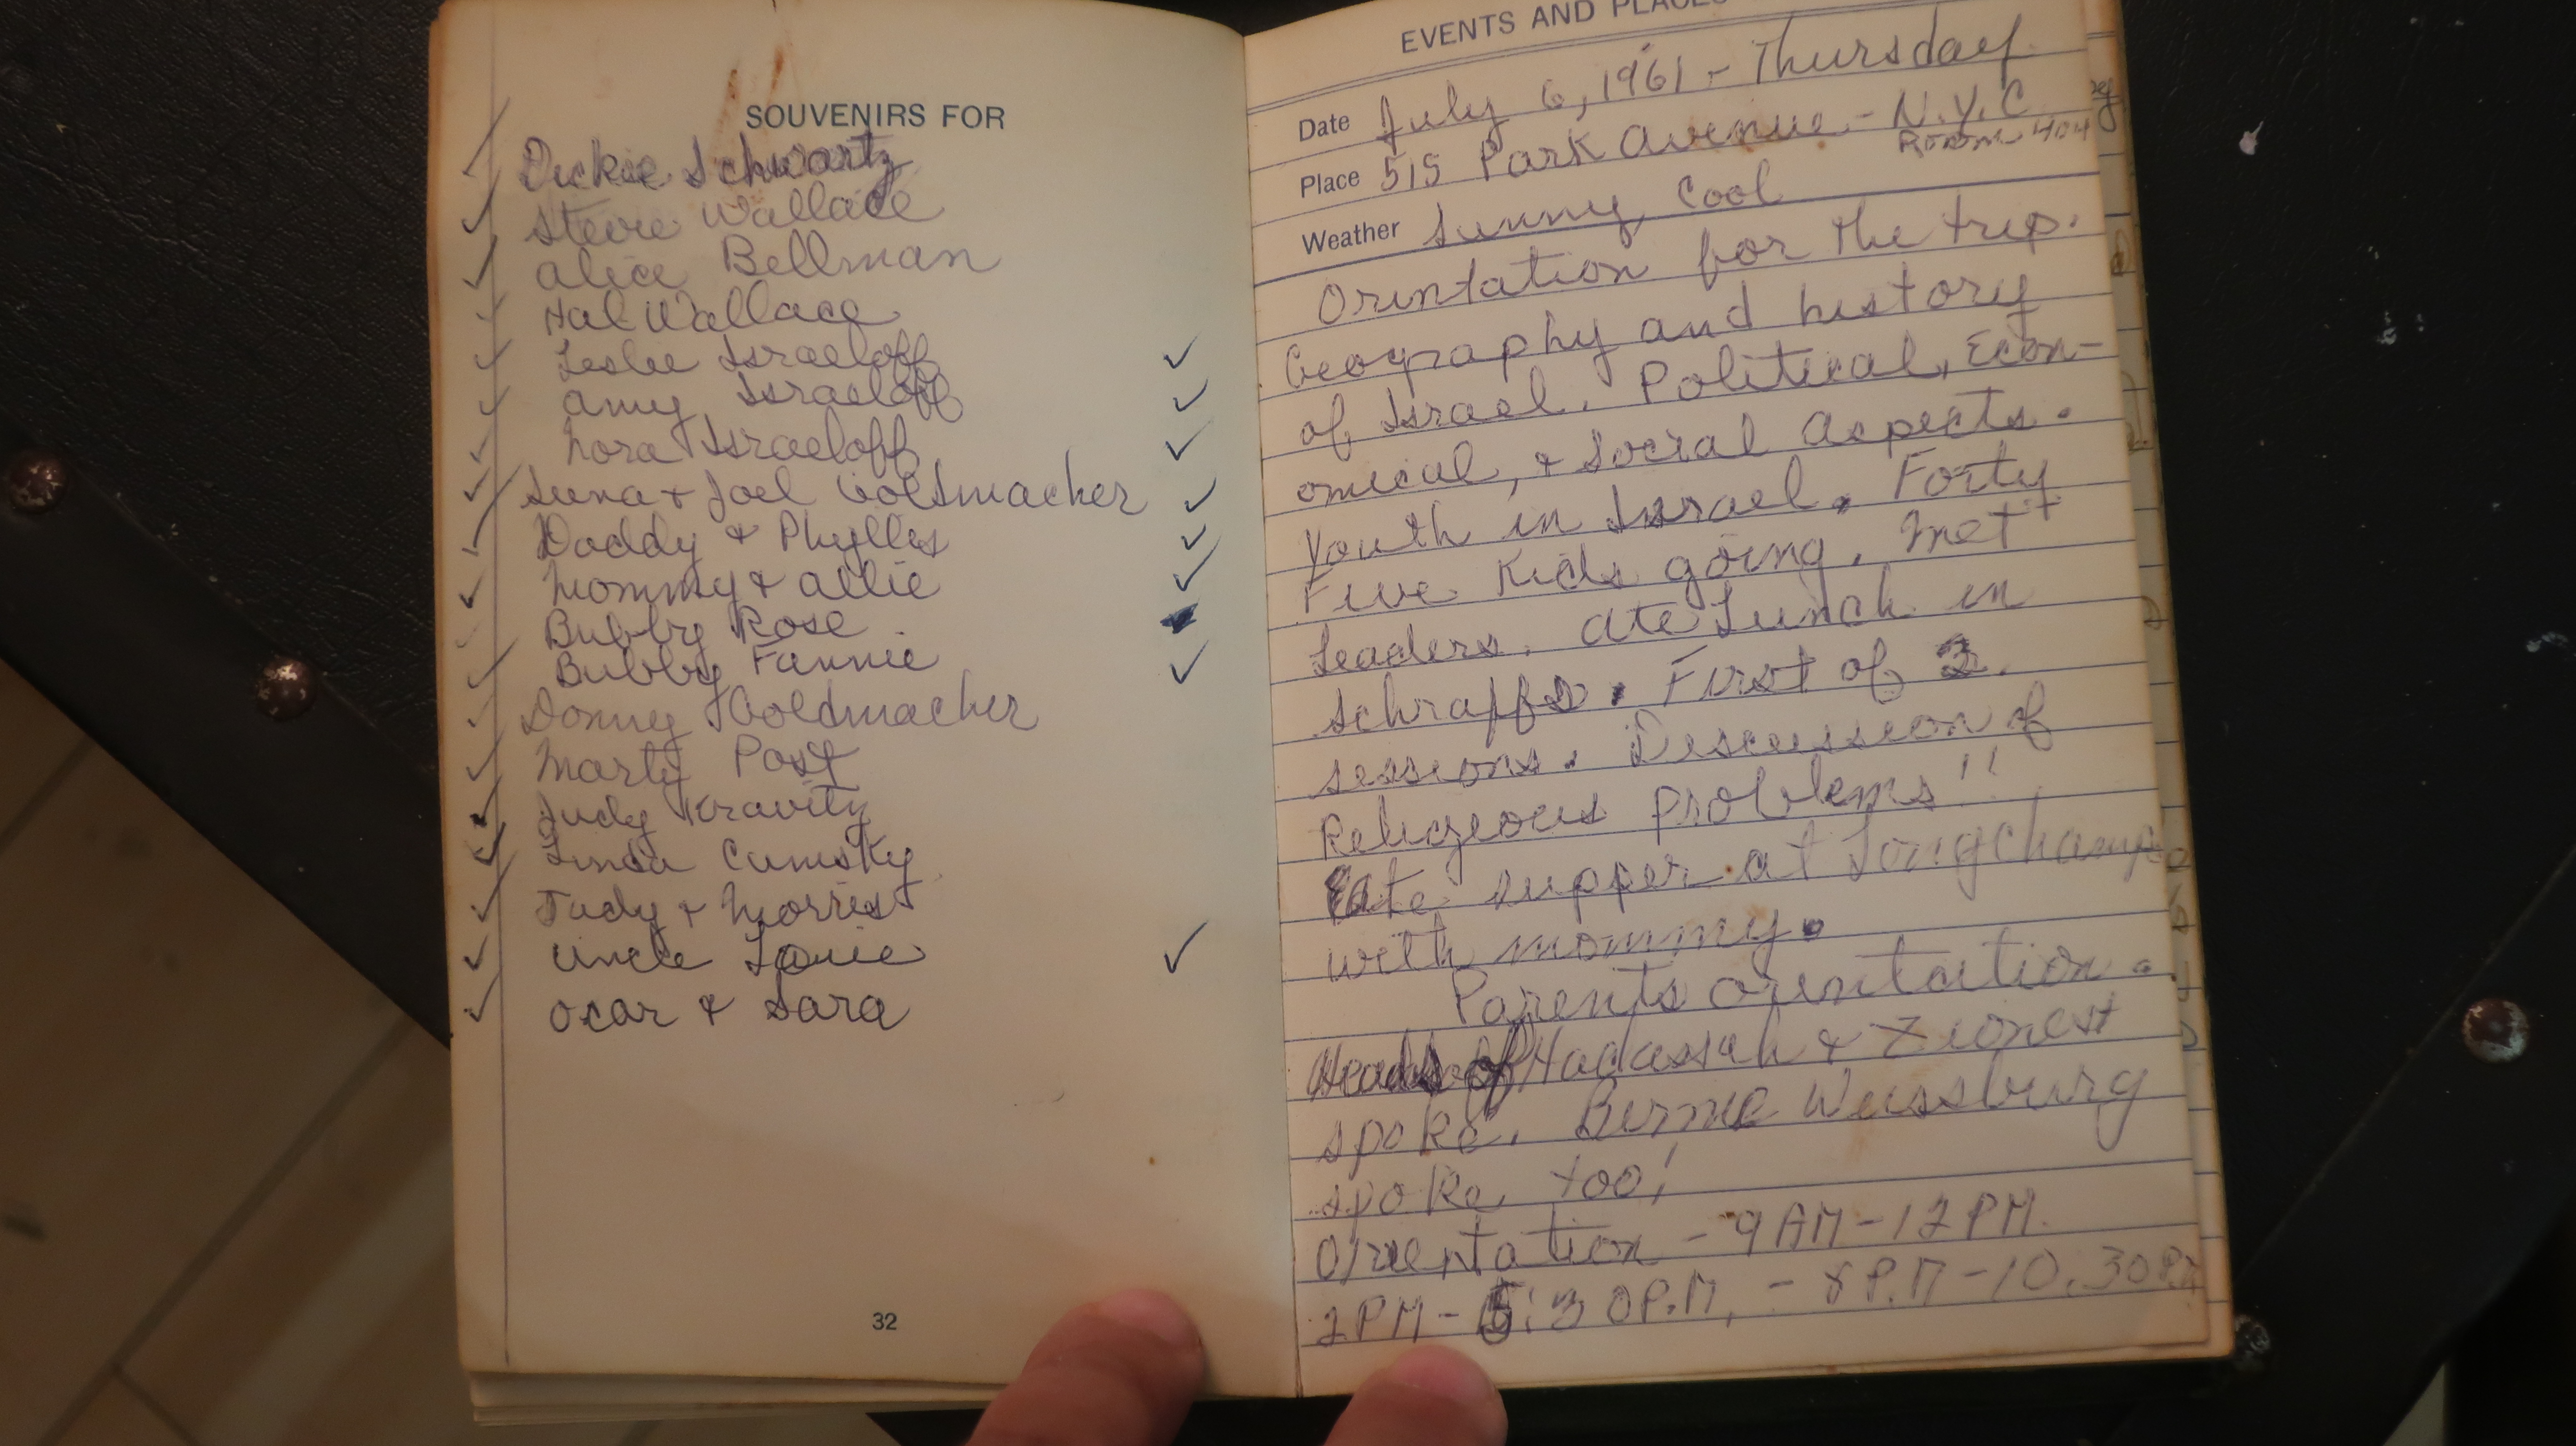 SOUVENIRS FOR
Dickie Schwartz
Stevie Wallace
Alice Bellman
Hal Wallace
Leslie Israeloff
Amy Israeloff
Nora Israeloff
& Joel Goldsmacher
Daddy & Phyllis
Mommy & Allie
Bubby Rose
Bubby Fannie
Donny Goldmacher
Marty Post
Judy Kravitz
Linda
Judy & Morris
Uncle Louie
Ocar & Sara
32
EVENTS AND PLACES
Date July 6, 1961 - Thursday
Place 515 Park Avenue - N.Y.C
Room 404
Weather Sunny, Cool
Orintation for the trip.
Geography and history
of Israel. Political, Econ-
omical, & Social Aspects.
Youth in Israel. Forty
Five Kids going. Met
Leaders. Ate Lunch in
Schraffs. First of 2
sessions. Discussion of
Religeous Problems!!
Ate supper at Longchamps
with mommy.
Parents orientation.
Heads of Hadassah & Zionist
spoke. Bernie Weissburg
spoke too!
Orientation - 9AM-12PM.
2PM-5:30P.M. - 8P.M-10.30PM